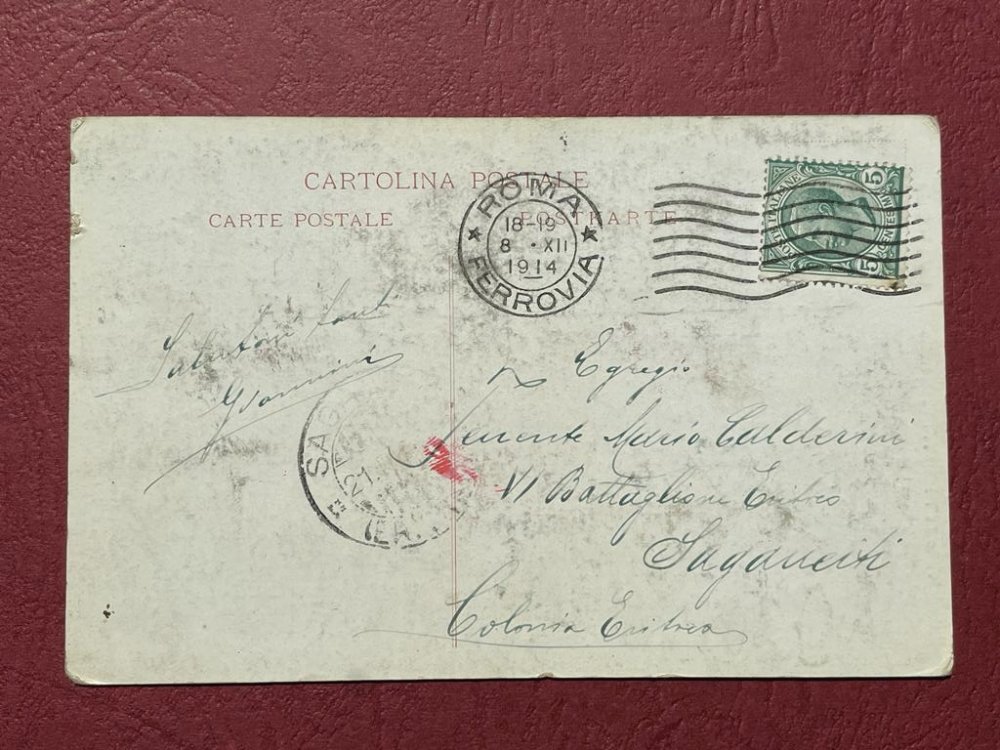 CARTOLINA POSTALE
CARTE POSTALE POSTKARTE
ROMA
18-19
8 • XII
1914
FERROVIA
POSTE ITALIANE
5 CENTESIMI 5
Saluti
Giannini
SA
21
(ER
Egregio
Tenente Mario Calderini
VI Battaglione Eritreo
Saganeiti
Colonia Eritrea